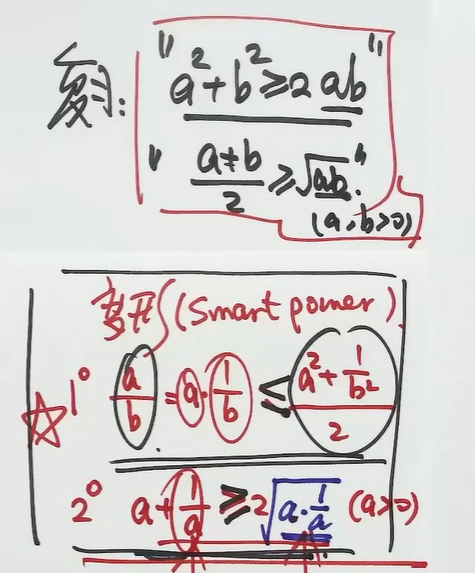 复习:
"a²+b²≥2ab"
"a+b/2≥√ab".
(a,b>0)
(Smart power)
☆1° a/b=a·1/b≤(a²+1/b²)/2
2° a+1/a≥2√(a·1/a) (a>0)